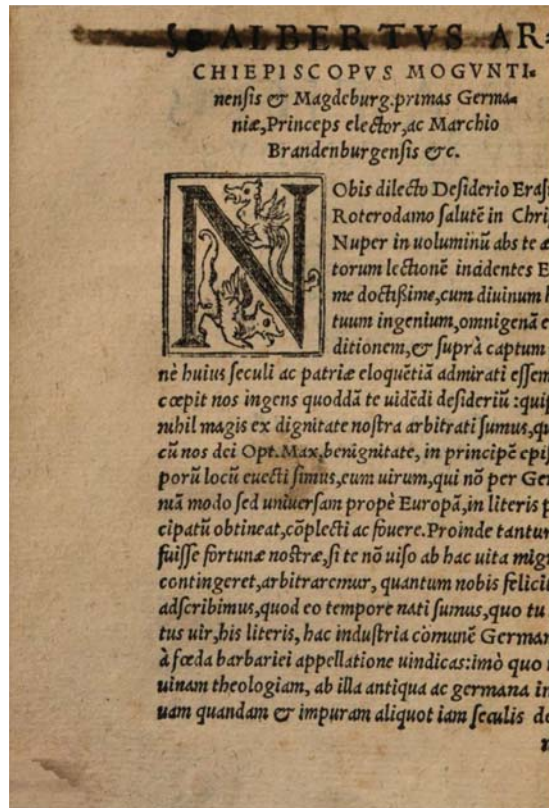 ALBERTVS AR-
CHIEPISCOPVS MOGVNTI-
nensis & Magdeburg.primas Germa-
niæ,Princeps elector,ac Marchio
Brandenburgensis &c.
NObis dilecto Desiderio Eras
Roterodamo salutē in Chri
Nuper in uoluminū abs te æ
torum lectionē incidentes E
me doctißime,cum diuinum
tuum ingenium,omnigenā e
ditionem,& suprà captum
nè huius seculi ac patriæ eloquētiā admirati essem
cœpit nos ingens quoddā te uidēdi desideriū :qui
nihil magis ex dignitate nostra arbitrati sumus,qu
cū nos dei Opt.Max.benignitate, in principē epi
porū locū euecti simus,eum uirum,qui nō per Ger
niā modo sed uniuersam propè Europā,in literis p
cipatū obtineat,cōplecti ac fouere.Proinde tantum
fuisse fortunæ nostræ,si te nō uiso ab hac uita migr
contingeret,arbitraremur, quantum nobis felicit
adscribimus,quod eo tempore nati sumus,quo tu
tus uir,his literis, hac industria cōmunē German
à fœda barbariei appellatione uindicas:imò quo
uinam theologiam, ab illa antiqua ac germana in
uam quandam & impuram aliquot iam seculis de